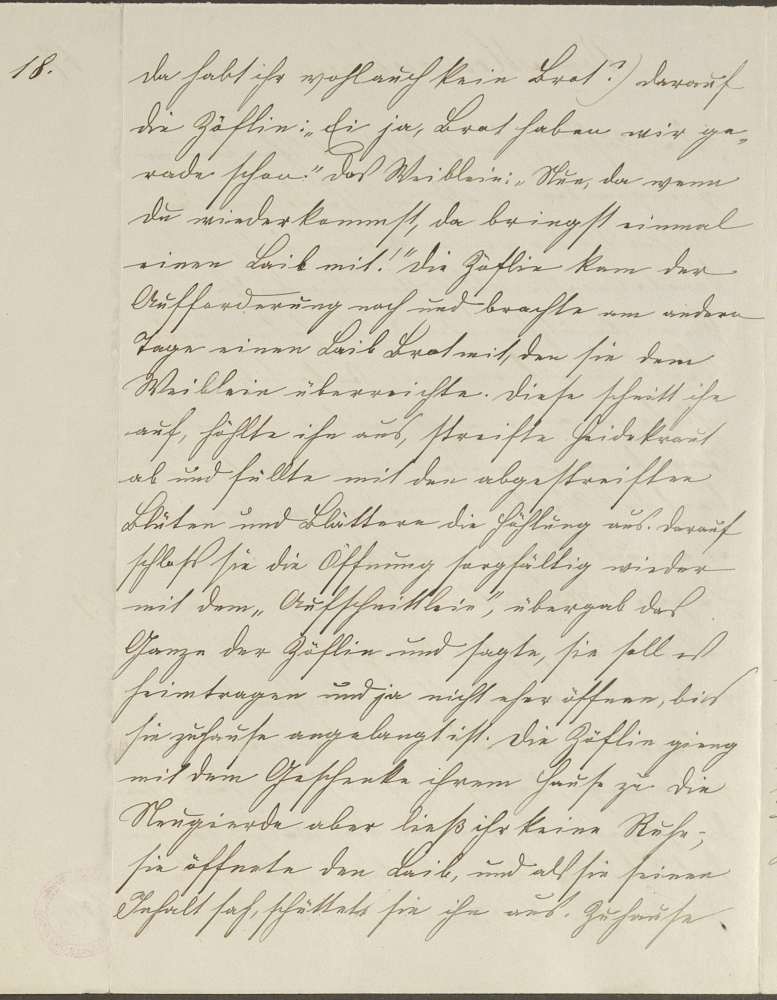 18.
da habt ihr wohl auch kein Brot?) darauf
die Zöflin: „Ei ja, Brot haben wir ge-
rade schon." Das Weiblein: „Nun, da wenn
du wiederkommst, da bringst einmal
einen Laib mit!" Die Zöflin kam der
Aufforderung nach und brachte am andern
Tage einen Laib Brot mit, den sie dem
Weiblein überreichte. Diese schnitt ihn
auf, höhlte ihn aus, streifte Heidekraut
ab und füllte mit den abgestreiften
Blüten und Blättern die Höhlung aus. Darauf
schloß sie die Öffnung sorgfältig wieder
mit dem „Aufschnittlein", übergab das
Ganze der Zöflin und sagte, sie soll es
heimtragen und ja nicht eher öffnen, bis
sie zuhause angelangt ist. Die Zöflin gieng
mit dem Geschenke ihrem Hause zu. Die
Neugierde aber ließ ihr keine Ruhe;
sie öffnete den Laib, und als sie seinen
Inhalt sah, schüttete sie ihn aus. Zuhause